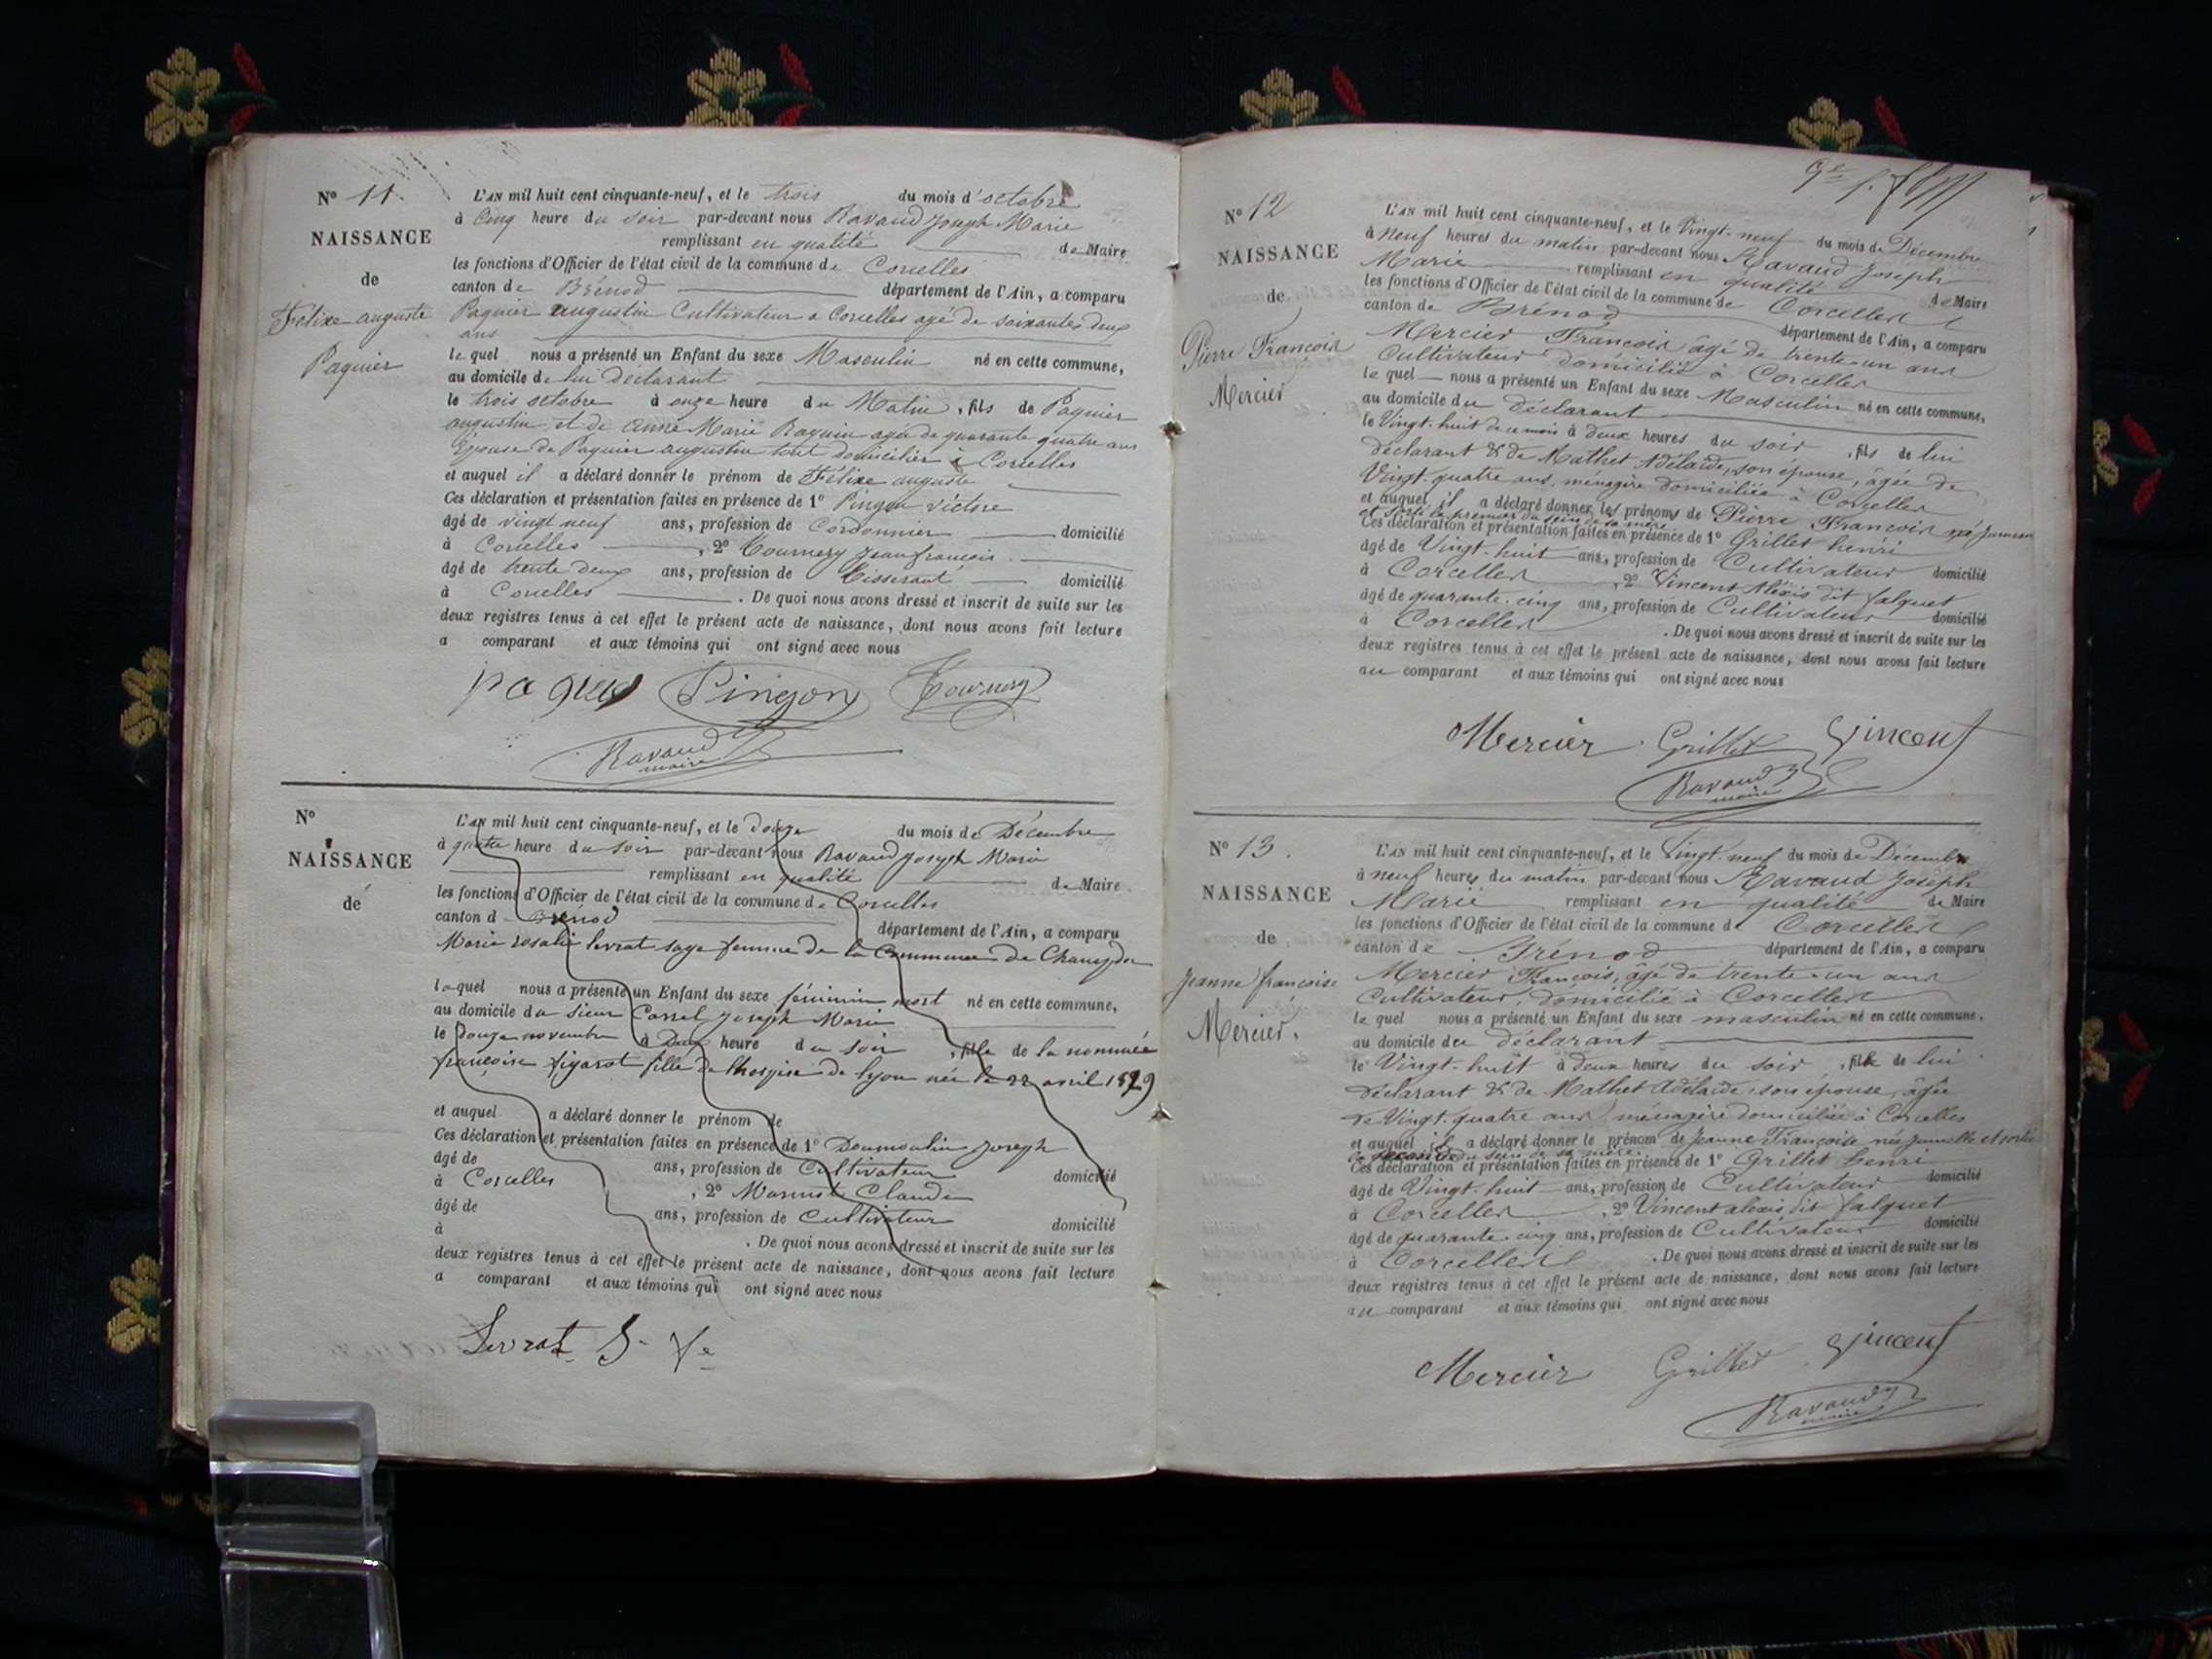 N° 11.
NAISSANCE
de
Félixe auguste
Paquier
L'AN mil huit cent cinquante-neuf, et le trois du mois d'octobre
à Cinq heure du soir par-devant nous Ravaud Joseph Marie
remplissant en qualité de Maire
les fonctions d'Officier de l'état civil de la commune de Corcelles
canton de Brénod département de l'Ain, a comparu
Paquier augustin Cultivateur a Corcelles agé de soixante deux
ans
le quel nous a présenté un Enfant du sexe Masculin né en cette commune,
au domicile de lui déclarant
le trois octobre à onze heure du Matin, fils de Paquier
augustin et de anne Marie Raquin agée de quarante quatre ans
Epouse de Paquier augustin tout domicilier à Corcelles
et auquel il a déclaré donner le prénom de Félixe auguste
Ces déclaration et présentation faites en présence de 1° Pingon victore
âgé de vingt neuf ans, profession de Cordonnier domicilié
à Corcelles, 2° Tournery Jean françois
âgé de trente deux ans, profession de Tisserant domicilié
à Corcelles. De quoi nous avons dressé et inscrit de suite sur les
deux registres tenus à cet effet le présent acte de naissance, dont nous avons fait lecture
a comparant et aux témoins qui ont signé avec nous
paquier Pingon Tournery
Ravaud
maire
N°
NAISSANCE
de
L'AN mil huit cent cinquante-neuf, et le douze du mois de Décembre
à quatre heure du soir par-devant nous Ravaud Joseph Marie
remplissant en qualité de Maire
les fonctions d'Officier de l'état civil de la commune de Corcelles
canton d Brénod
département de l'Ain, a comparu
Marie rosalie levrat sage femme de la Commune de Champdor
laquel nous a présenté un Enfant du sexe féminin mort né en cette commune,
au domicile du sieur Carrel Joseph Marie
le douze novembre à Deux heure du soir, fille de la nommée
françoise figarot fille de lhospice de lyon née le 22 avril 1829
et auquel a déclaré donner le prénom de
Ces déclaration et présentation faites en présence de 1° Doumoulin Joseph
âgé de ans, profession de Cultivateur domicilié
à Corcelles, 2° Marmet Claude
âgé de ans, profession de Cultivateur domicilié
à . De quoi nous avons dressé et inscrit de suite sur les
deux registres tenus à cet effet le présent acte de naissance, dont nous avons fait lecture
a comparant et aux témoins qui ont signé avec nous
Levrat S. fe
N° 12
NAISSANCE
de
Pierre François
Mercier
L'AN mil huit cent cinquante-neuf, et le Vingt-neuf du mois de Décembre
à neuf heures du matin par-devant nous Ravaud Joseph
Marie remplissant en qualité de Maire
les fonctions d'Officier de l'état civil de la commune de Corcelles
canton de Brénod département de l'Ain, a comparu
Mercier François âgé de trente-un ans
Cultivateur domicilié à Corcelles
le quel nous a présenté un Enfant du sexe Masculin né en cette commune,
au domicile du déclarant
le Vingt-huit de ce mois à deux heures du soir, fils de lui
déclarant & de Mathet Adélaïde, son épouse, âgée de
Vingt-quatre ans ménagère domiciliée à Corcelles
et auquel il a déclaré donner les prénoms de Pierre François né Jumeau
et sorti le premier du sein de sa mère
Ces déclaration et présentation faites en présence de 1° Grillet henri
âgé de Vingt-huit ans, profession de Cultivateur domicilié
à Corcelles, 2° Vincent Aléxis dit falquet
âgé de quarante-cinq ans, profession de Cultivateur domicilié
à Corcelles. De quoi nous avons dressé et inscrit de suite sur les
deux registres tenus à cet effet le présent acte de naissance, dont nous avons fait lecture
au comparant et aux témoins qui ont signé avec nous
Mercier Grillet Vincent
Ravaud
maire
N° 13.
NAISSANCE
de
Jeanne françoise
Mercier.
L'AN mil huit cent cinquante-neuf, et le Vingt-neuf du mois de Décembre
à neuf heures du matin par-devant nous Ravaud Joseph
Marie remplissant en qualité de Maire
les fonctions d'Officier de l'état civil de la commune de Corcelles
canton de Brénod département de l'Ain, a comparu
Mercier François, âgé de trente-un ans
Cultivateur, domicilié à Corcelles
le quel nous a présenté un Enfant du sexe masculin né en cette commune,
au domicile du déclarant
le Vingt-huit à deux heures du soir, fille de lui
déclarant & de Mathet Adélaïde, son épouse, âgée
de Vingt-quatre ans, ménagère domiciliée à Corcelles
et auquel il a déclaré donner le prénom de Jeanne Françoise née jumelle et sortie
la seconde du sein de sa mère.
Ces déclaration et présentation faites en présence de 1° Grillet henri
âgé de Vingt-huit ans, profession de Cultivateur domicilié
à Corcelles, 2° Vincent alexis dit falquet
âgé de quarante-cinq ans, profession de Cultivateur domicilié
à Corcelles. De quoi nous avons dressé et inscrit de suite sur les
deux registres tenus à cet effet le présent acte de naissance, dont nous avons fait lecture
au comparant et aux témoins qui ont signé avec nous
Mercier Grillet Vincent
Ravaud
maire